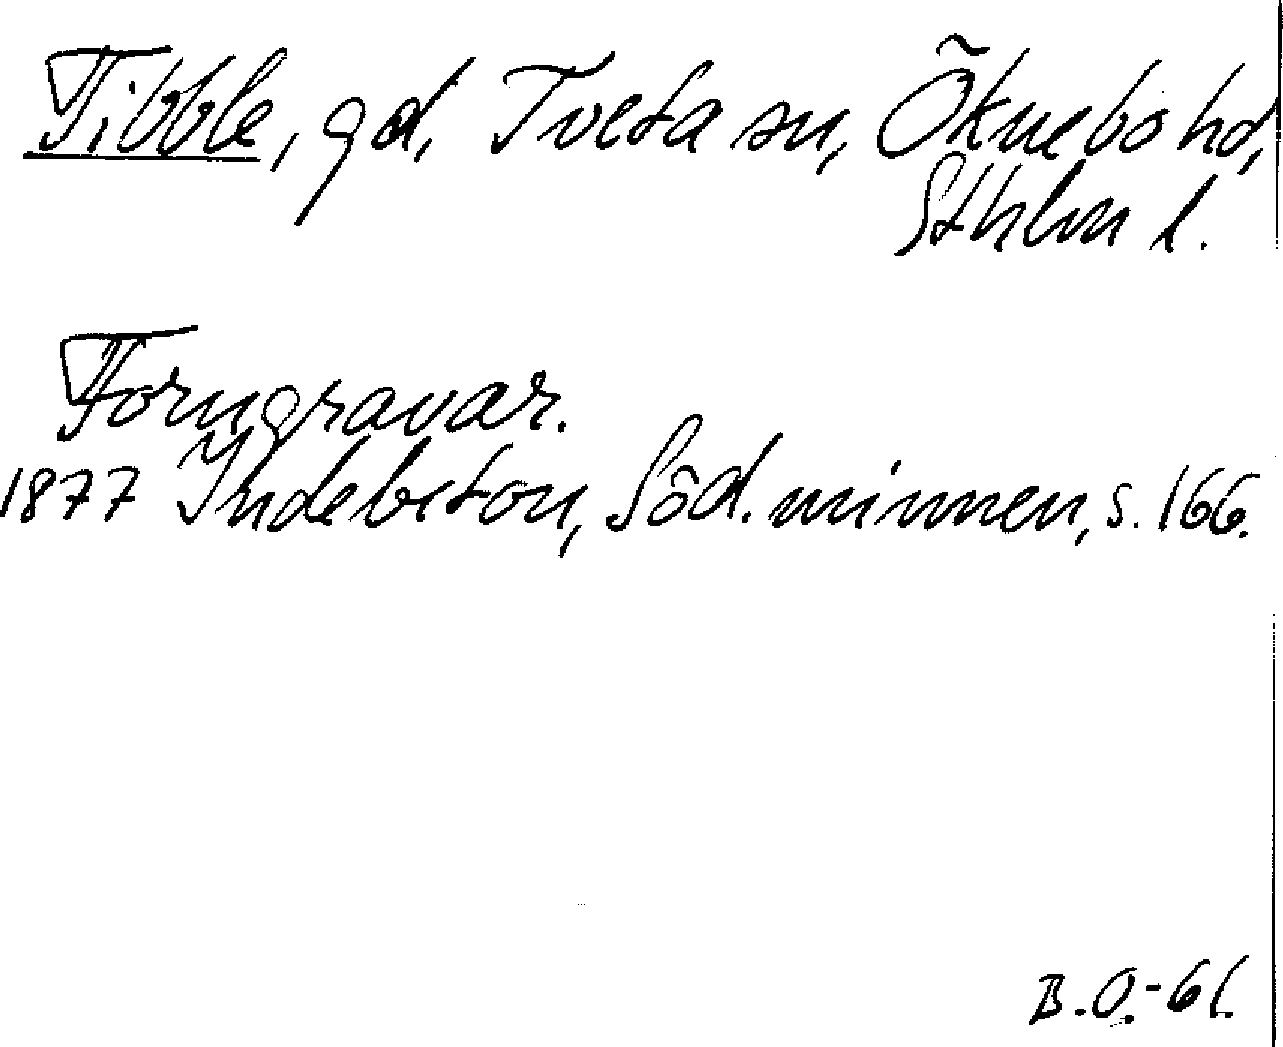 Tibble, gd, Tveta sn, Öknebo hd,
Sthlm l.
Forngravar.
1877 Indebetou, Söd. minnen, s. 166.
B.O.-61.